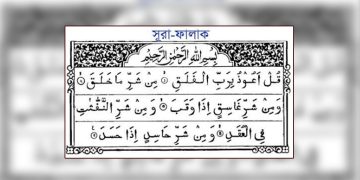 সূরা-ফালাক
بِسْمِ اللهِ الرَّحْمٰنِ الرَّحِيْمِ
قُلْ اَعُوْذُ بِرَبِّ الْفَلَقِ ۙ مِنْ شَرِّ مَا خَلَقَ ۙ
وَمِنْ شَرِّ غَاسِقٍ اِذَا وَقَبَ ۙ وَمِنْ شَرِّ النَّفّٰثٰتِ
فِي الْعُقَدِ ۙ وَمِنْ شَرِّ حَاسِدٍ اِذَا حَسَدَ